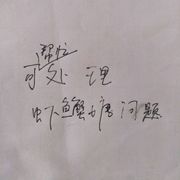 帮忙
可处理
虾蟹塘问题